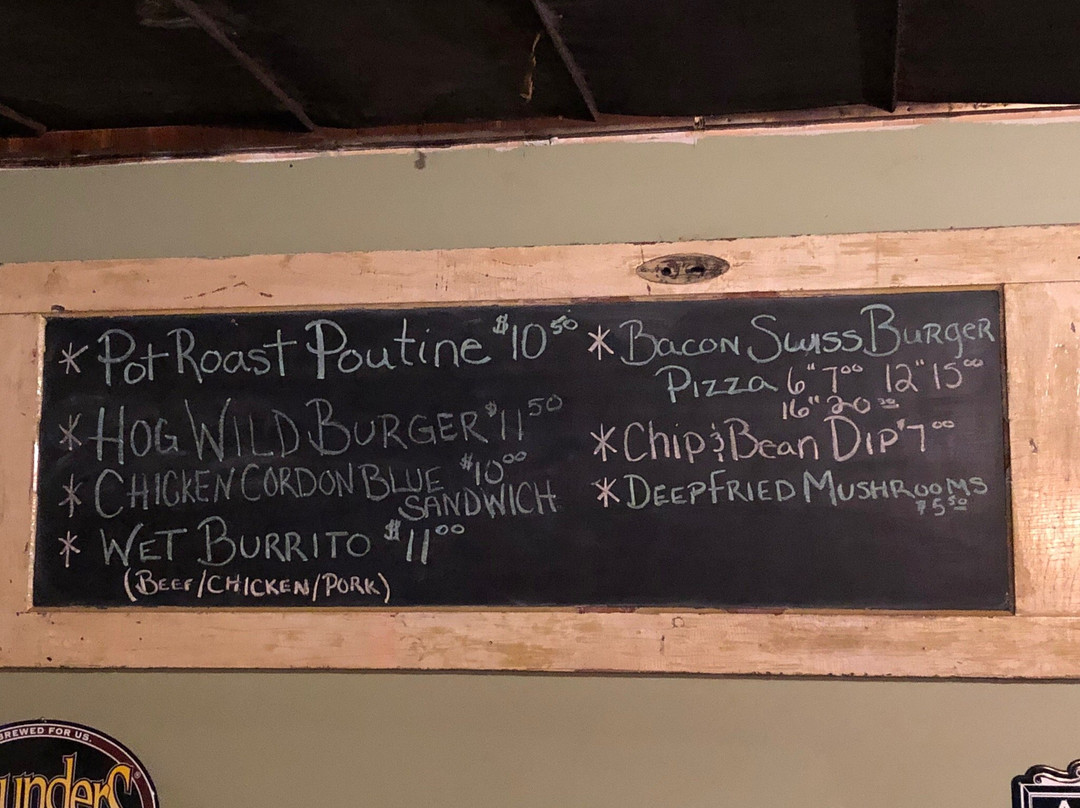 * Pot Roast Poutine $10 50
* HOG WILD BURGER $11 50
* CHICKEN CORDON BLUE $10 00
SANDWICH
* WET BURRITO $11 00
(BEEF/CHICKEN/PORK)
* BACON SWISS BURGER
PIZZA 6" 7 00 12" 15 00
16" 20
* Chip & Bean Dip $7 00
* DEEP FRIED MUSHROOMS
$5 50
BREWED FOR US.